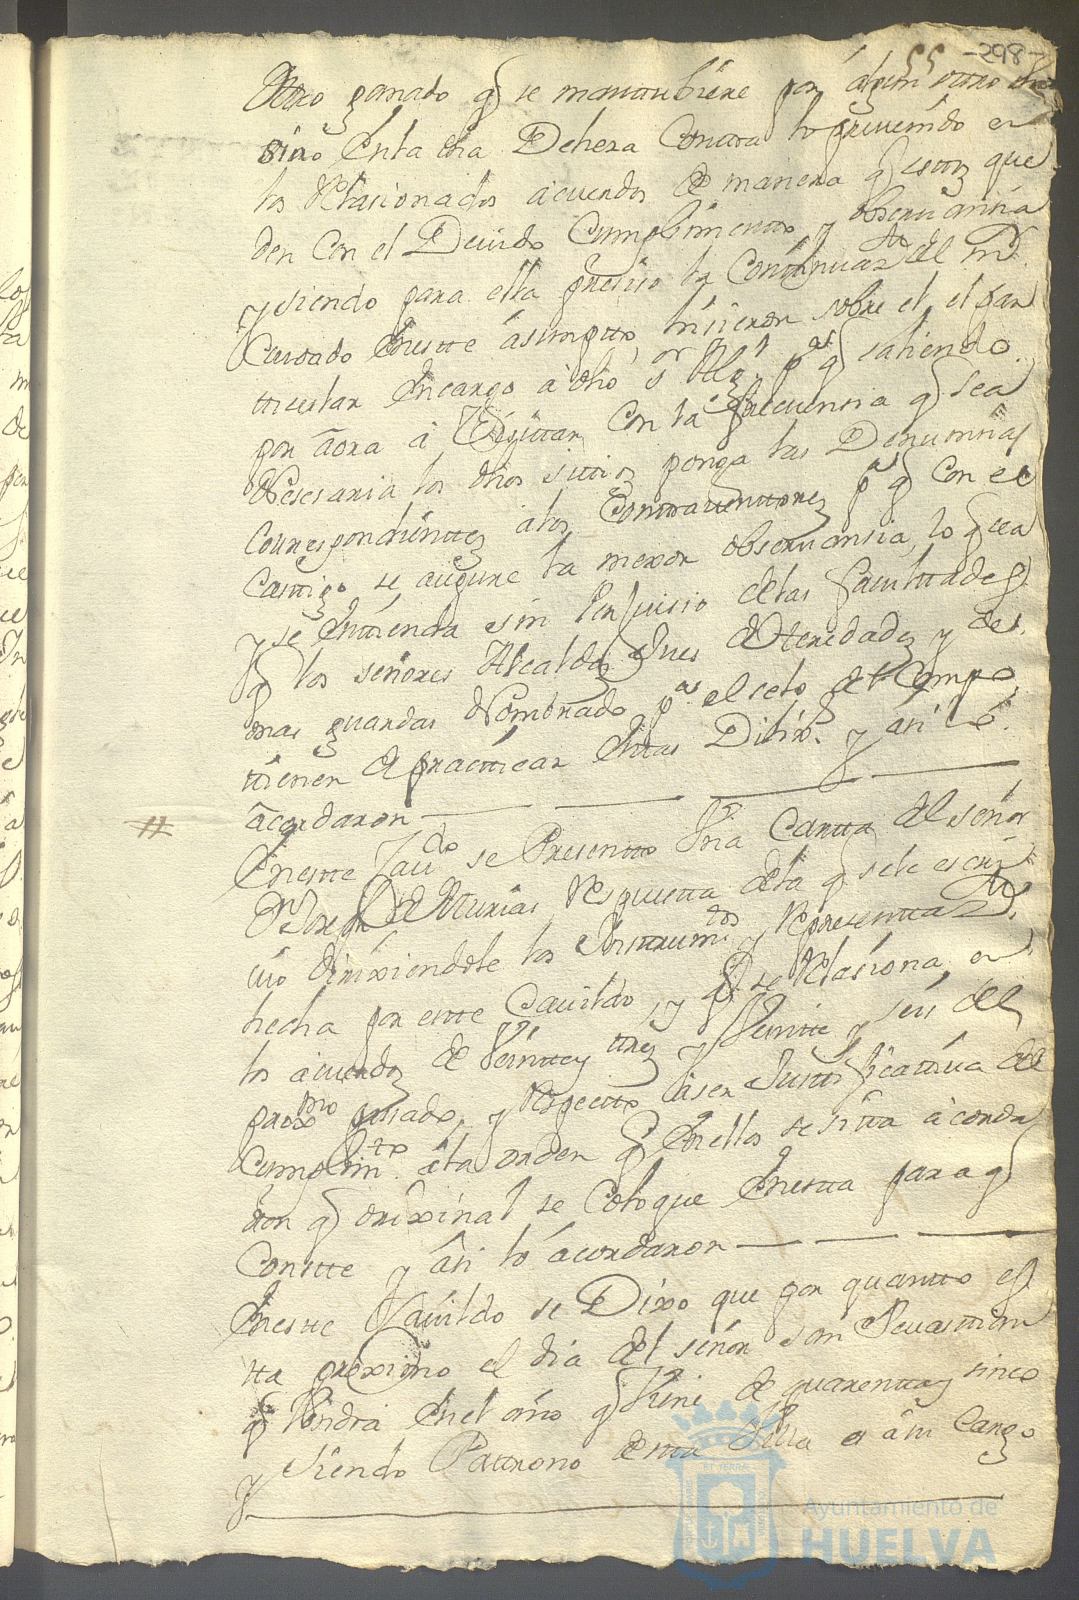 -298-
otro ganado q se mantubiere por algun otro
sitio en la dha Deheza Contra lo prevenido en
los relasionados acuerdos de manera q estos que
den con el Devido Cumplimiento y observansia
y siendo para ella presiso la Continuaz.on del
Cuidado en este asumpto, hisieron sobre el, el par
ticular encargo a dho s.or p.a q saliendo
por aora a Visitar con la frecuensia q sea
Nesesaria los dhos sitios ponga las Denunsias
Correspondientes a los Contraventores p.a q con el
Castigo se asegure la mexor observansia, lo q sea
y se entienda sin Perjuisio de las facultades
q los señores Alcaldes Jues de Heredades y de
mas guardas Nombrado p.a el celo del Campo
tienen de practicar estas Dilix.s y asi lo
acordaron
En este Cavdo se Presentto Una Cartta del señor
Dn Joseph de Murias Respuesta de la q se le escri
vio dirixiendole los Instrum.tos y representaz.on
hecha por este Cavildo, y q se relasiona en
los acuerdos de veintte y tres y veintte y seis del
prox.mo pasado, y respecto a ser Justificativa del
Cumplim.to a la orden q en ellos se sitta acorda
ron q orixinal se coloque en esta para q
Constte y asi lo acordaron
En este Cavildo se Dixo que por quantto es
ta proximo el dia del señor san Sevasttian
q vendra en el año q viene de quarentta y sinco
y siendo Pattrono de esta Villa a su cargo
Ayuntamiento de
HUELVA